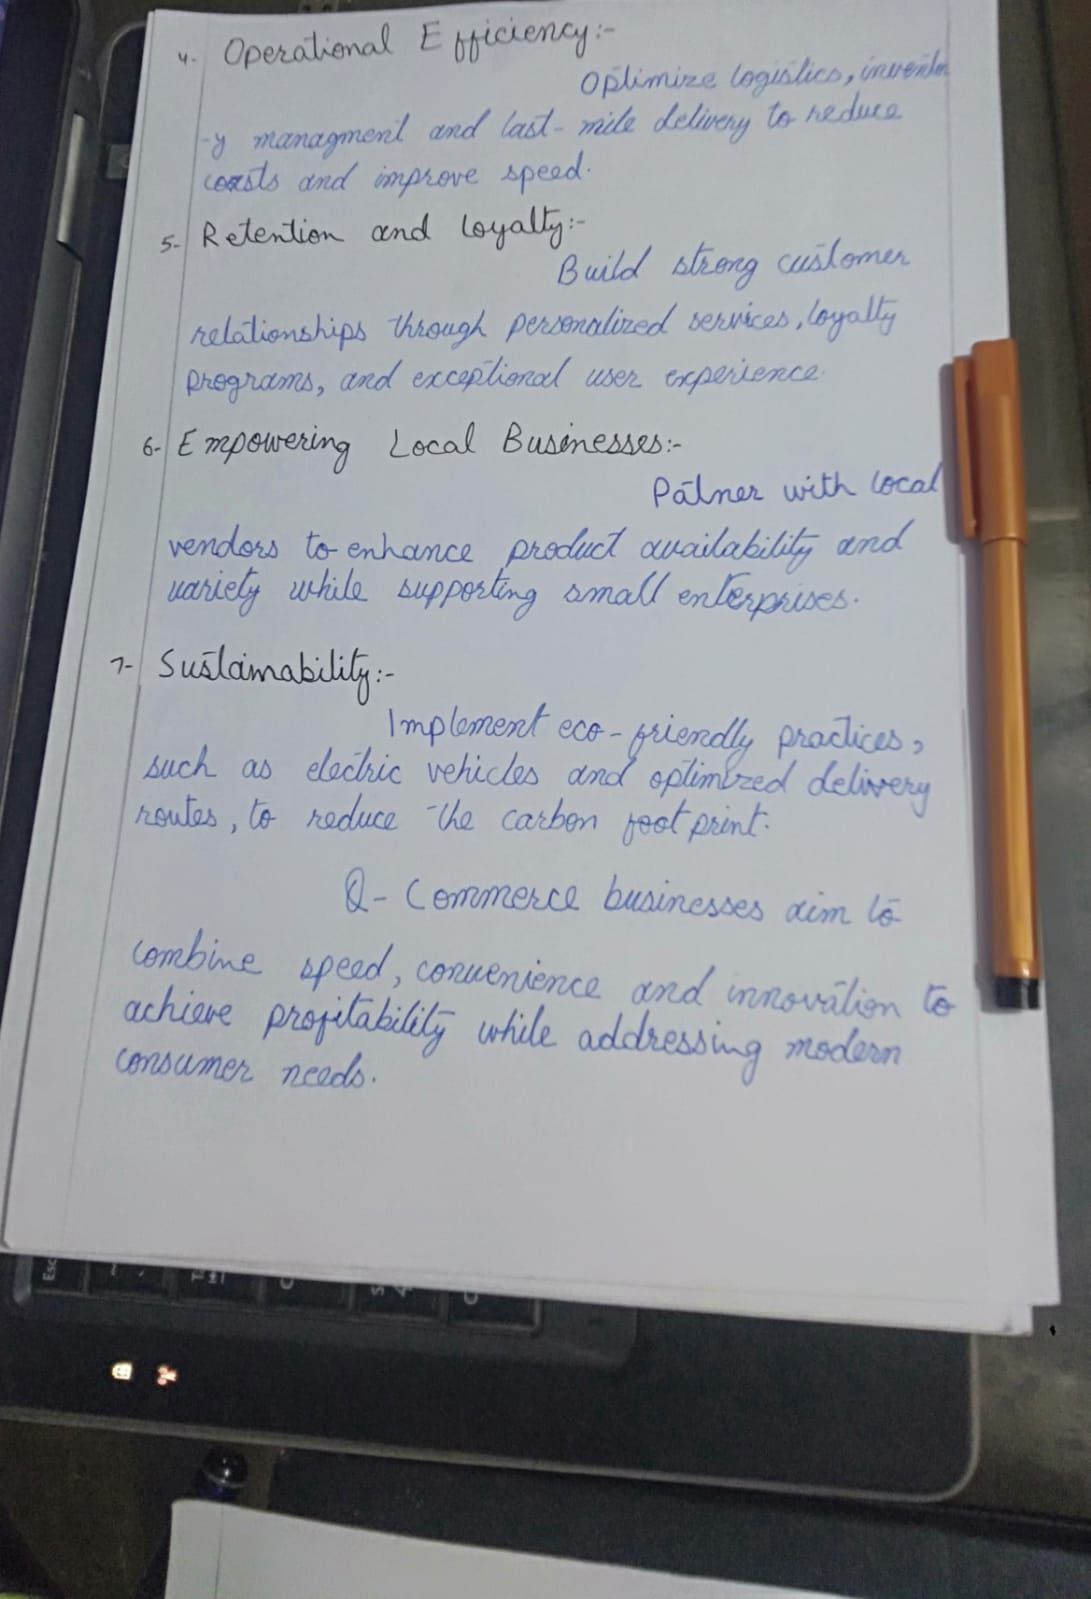 4- Operational Efficiency:-
Optimize logistics, inventor
-y managment and last-mile delivery to reduce
costs and improve speed.
5- Retention and loyalty:-
Build strong customer
relationships through personalized services, loyalty
programs, and exceptional user experience.
6- Empowering Local Businesses:-
Patner with local
vendors to enhance product availability and
variety while supporting small enterprises.
7- Sustainability:-
Implement eco-friendly practices,
such as electric vehicles and optimized delivery
routes, to reduce the carbon foot print.
Q-Commerce businesses aim to
combine speed, convenience and innovation to
achieve profitability while addressing modern
consumer needs.
Esc